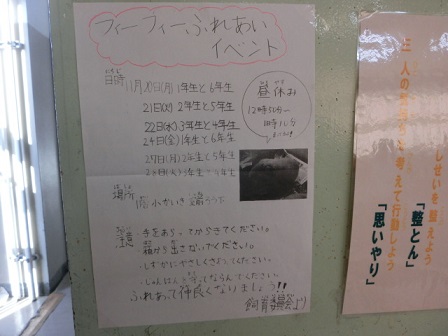 フィーフィーふれあい
イベント
にちじ
日時
11月20日(月)1年生と6年生
21日(火)2年生と5年生
22日(水)3年生と4年生
24日(金)1年生と6年生
27日(月)2年生と5年生
昼休み
12時50分〜
ばしょ
場所
ろうか
ちゅうい
注意
手をあらってからきてください。
箱から出さないでください。
しずかにやさしくさわってください。
じゅんばんを守ってならんでください。
ふれあって仲良くなりましょう!!
飼育委員会より
三 人の
考えて行動しよう
「思いやり」
しせいを整えよう
「整とん」